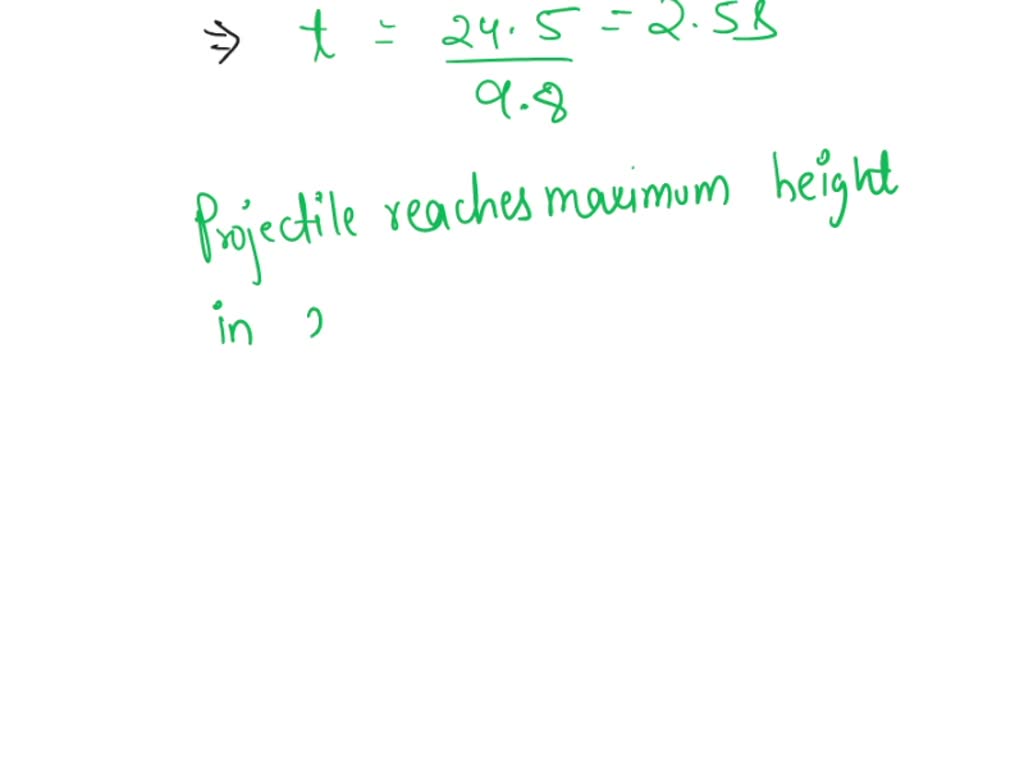 ⇒ t = 24.5 = 2.5s
9.8
Projectile reaches maximum height
in